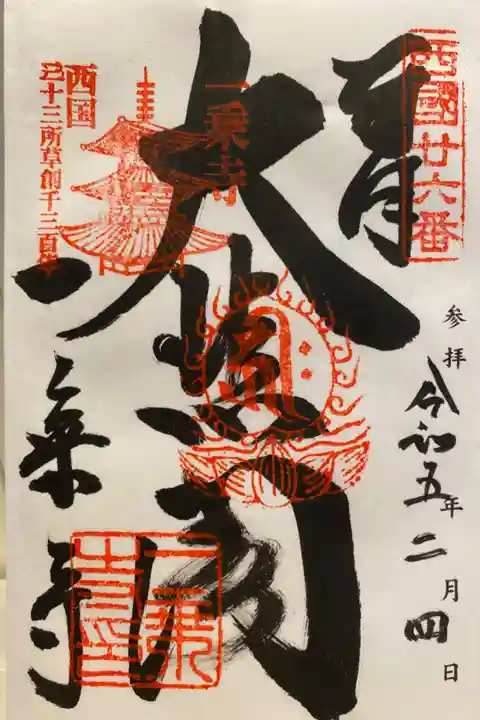 西國廿六番
奉拝
参拝 令和五年二月四日
大悲閣
一乗寺
西国
三十三所草創千三百年
一乗寺
一乗寺印